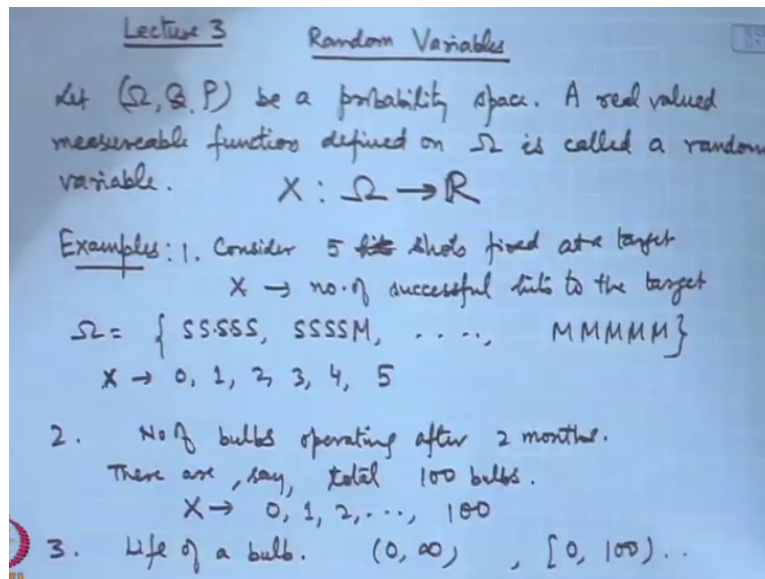 Lecture 3 Random Variables
Let (Ω, B, P) be a probability space. A real valued
measureable function defined on Ω is called a random
variable. X : Ω → R
Examples: 1. Consider 5 shots fired at a target
X → no. of successful hits to the target
Ω = { SSSSS, SSSSM, . . . ., MMMMM}
X → 0, 1, 2, 3, 4, 5
2. No of bulbs operating after 2 months.
There are, say, total 100 bulbs.
X → 0, 1, 2, . . ., 100
3. Life of a bulb. (0, ∞) , [0, 100) . .